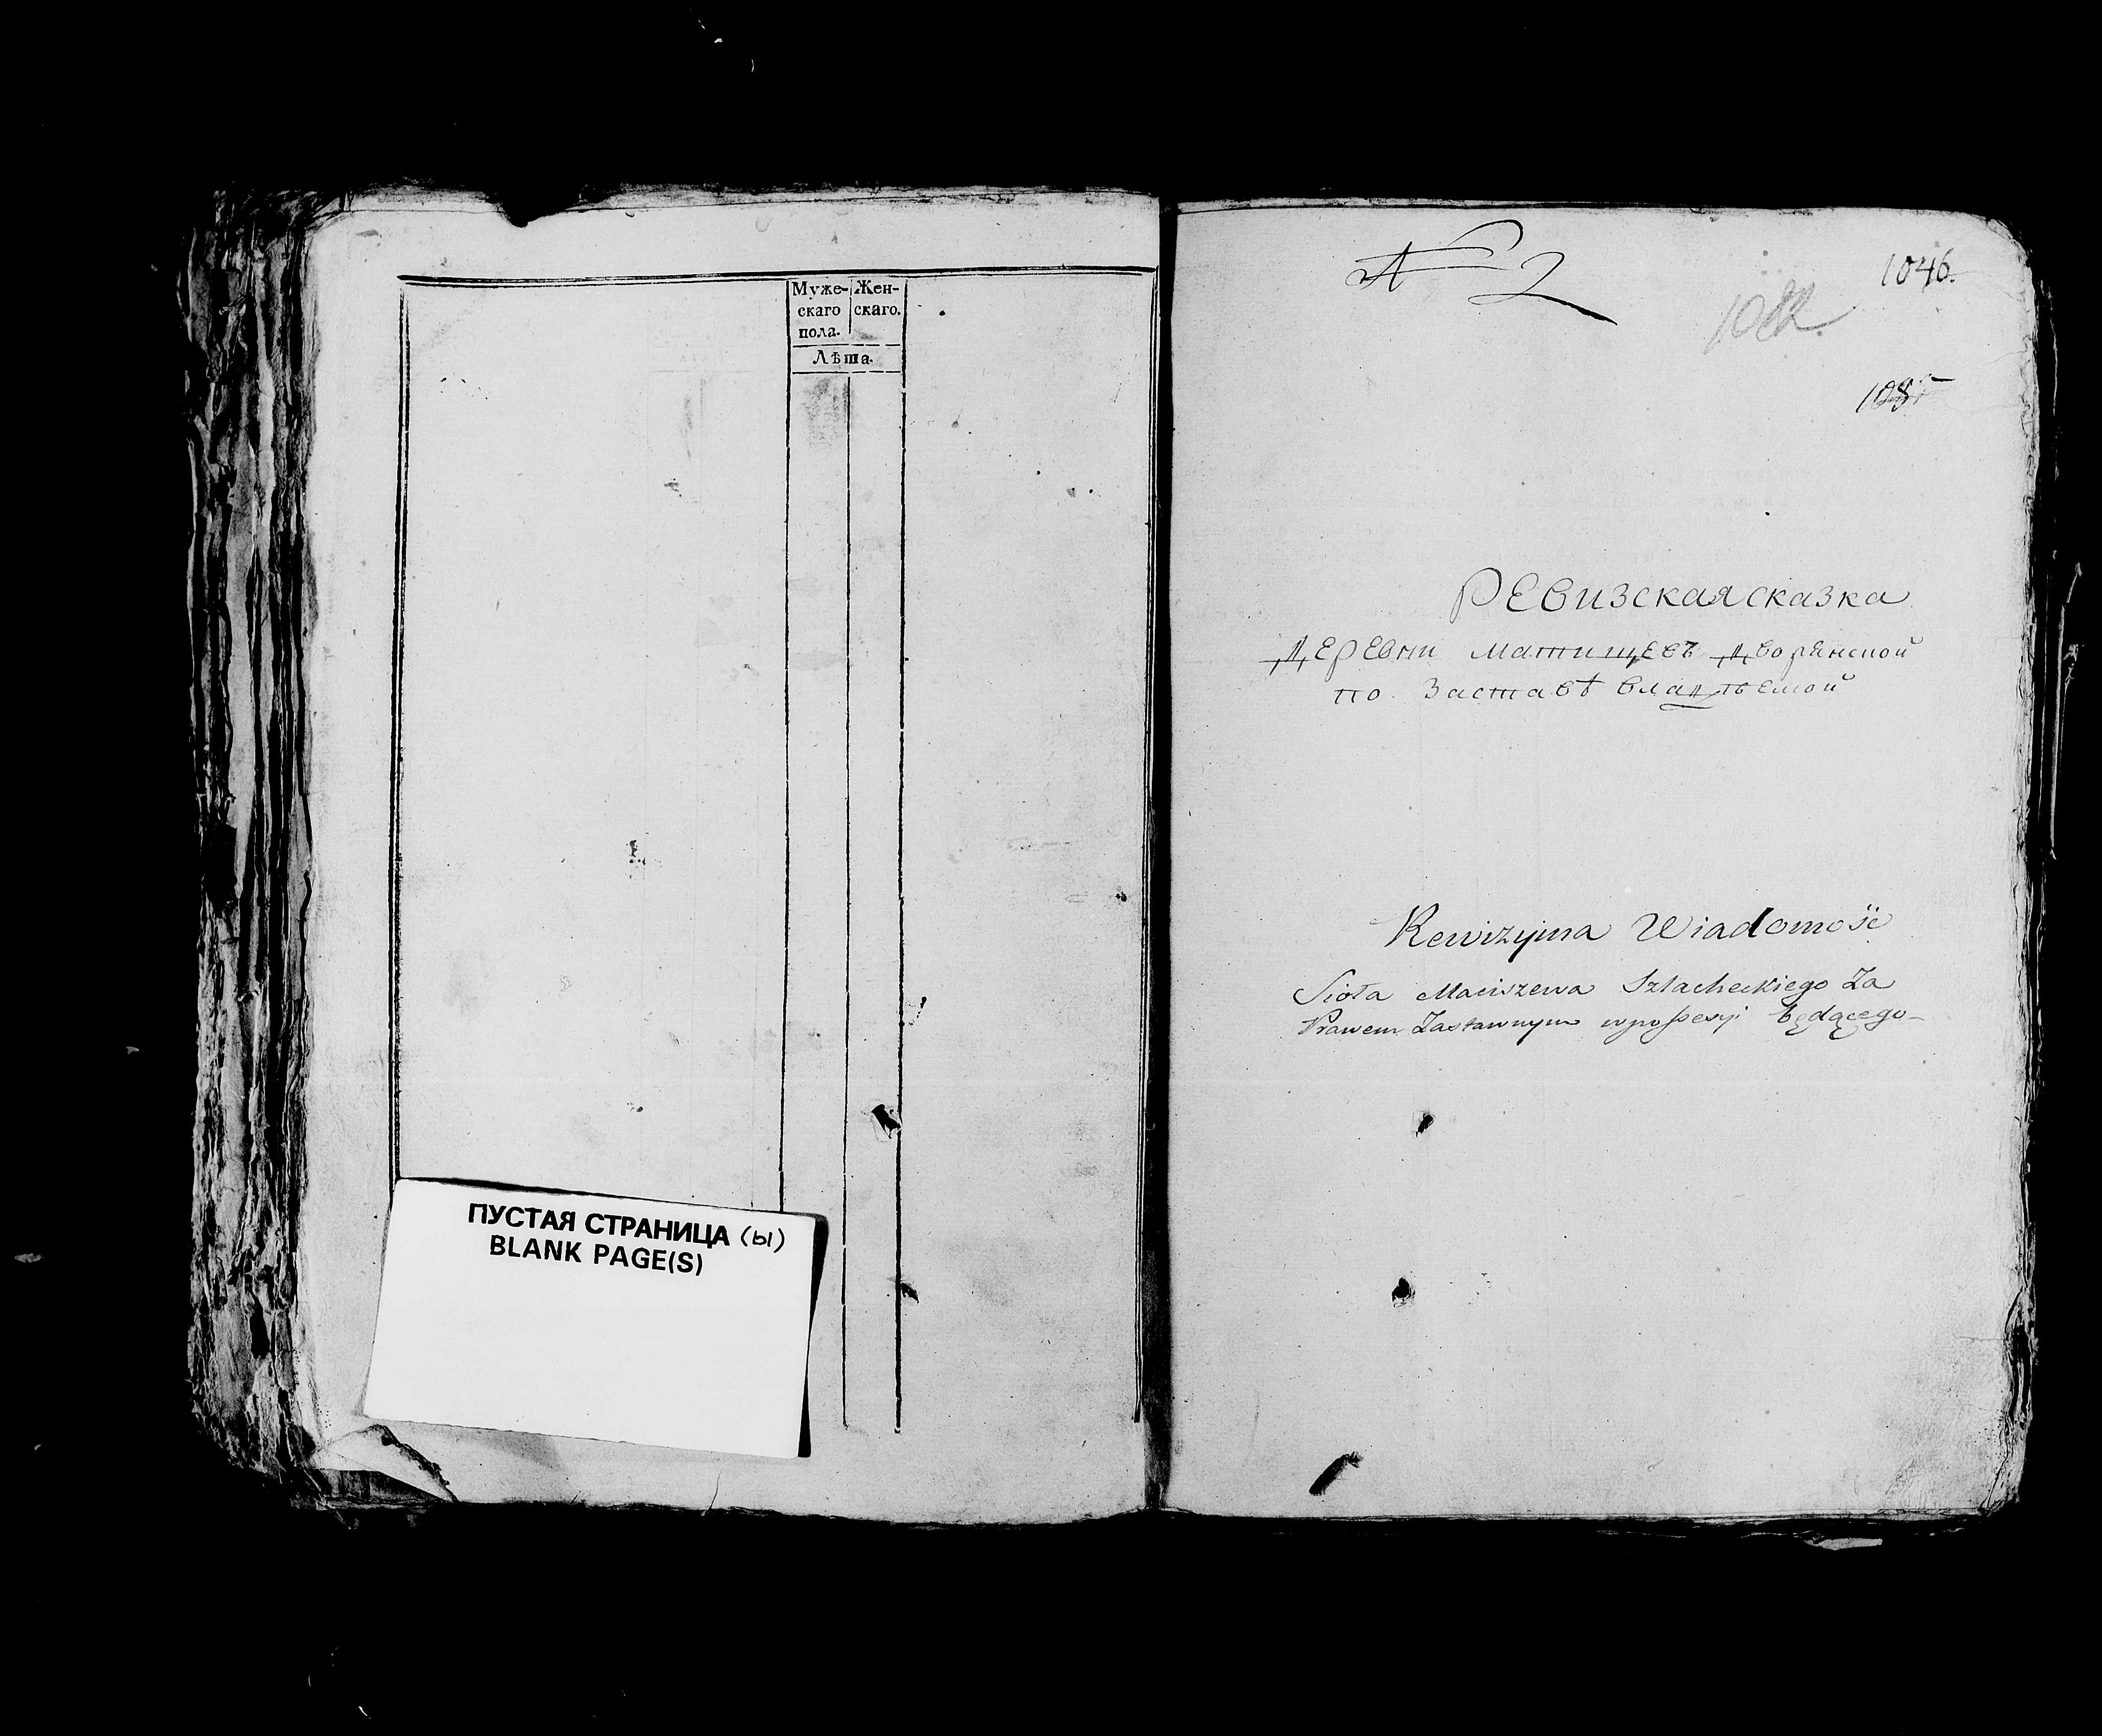 Муже- Жен-
скаго скаго.
пола.
Лѣта.
ПУСТАЯ СТРАНИЦА (ы)
BLANK PAGE(S)
№ 2
1046.
1085
Ревизская сказка
деревни Матищевъ дворянской
по заставѣ владѣемой
Rewizyjna Wiadomość
Sioła Maciszewa Szlacheckiego Za
Prawem Zastawnym w possesyi będącego